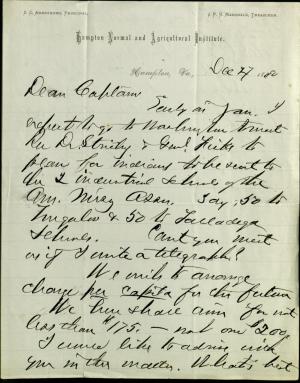 S. C. ARMSTRONG, PRINCIPAL. J. F. B. MARSHALL, TREASURER.
Hampton Normal and Agricultural Institute.
Hampton, Va., Dec 27 1882
Dear Captain
Early in Jan. I
expect to go to Washington & meet
Rev Dr. Strieby & Genl. Fisk to
plan for Indians to be sent to
the 2 industrial schools of the
Am. Missy Assn. Say, 50 to
Tougaloo & 50 to Talladega
Schools. Can't you meet
us if I write or telegraph?
We wish to arrange
charge per capita for the future
We here shall aim for not
less than $175. - not one $200
I would like to advise with
you in this matter. What is best